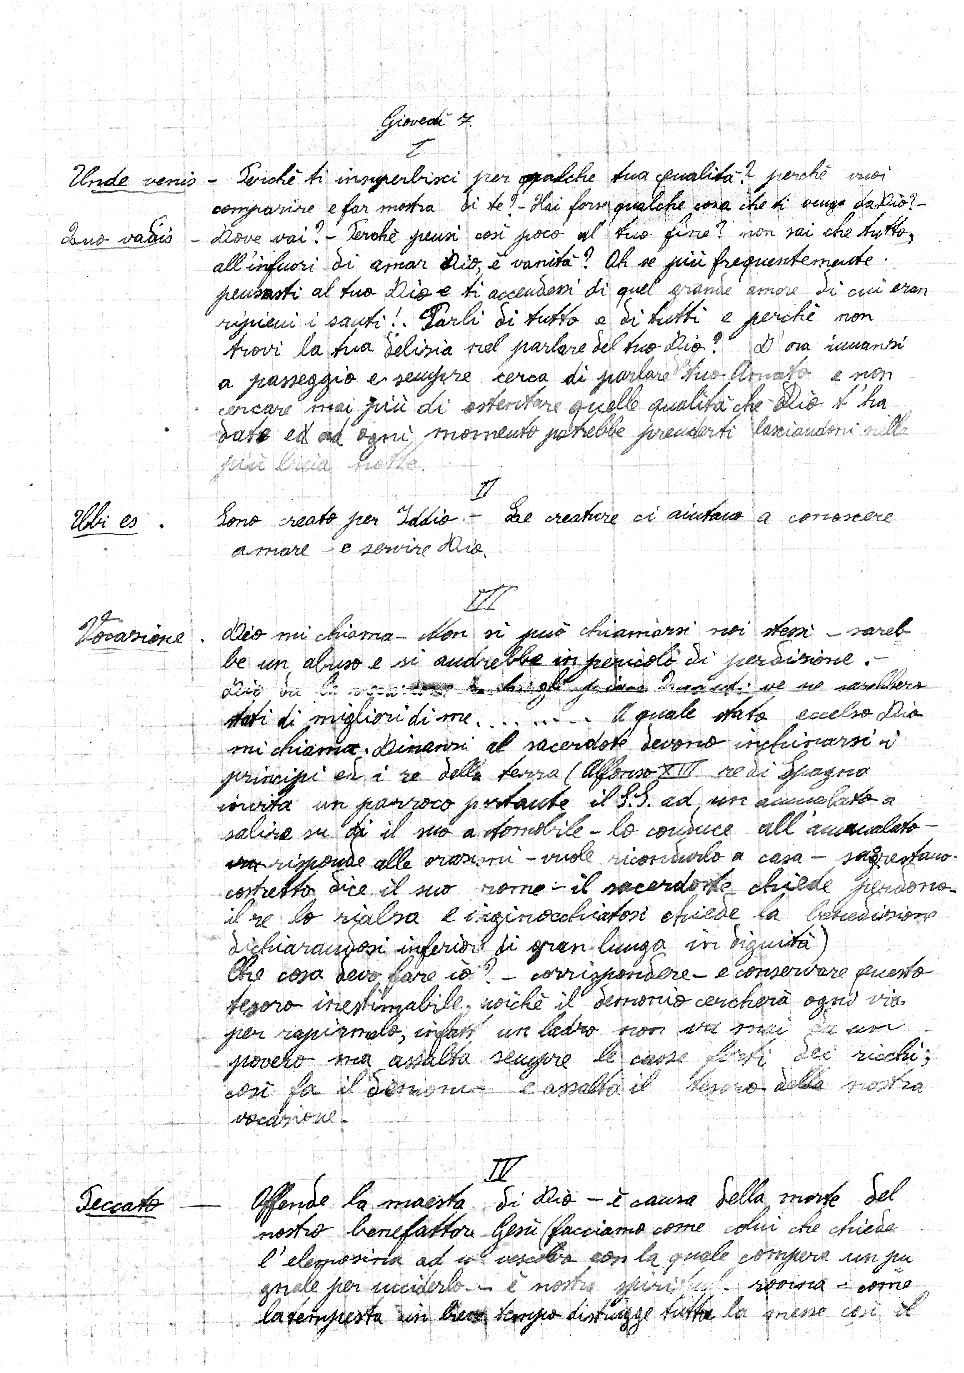 Giovedì 7.
I
Unde venis - Perchè ti insuperbisci per qualche tua qualità? perchè vuoi
comparire e far mostra di te? - Hai forse qualche cosa che ti venga da Dio? -
Quo vadis - Dove vai? - Perchè pensi così poco al tuo fine? non sai che tutto,
all'infuori di amar Dio, è vanità? Oh se più frequentemente
pensasti al tuo Dio e ti accendessi di quel grande amore di cui eran
ripieni i santi! Parli di tutto e di tutti e perchè non
trovi la tua delizia nel parlare del tuo Dio? D'ora innanzi
a passeggio e sempre cerca di parlare tuo Amato e non
cercare mai più di ostentare quelle qualità che Dio t'ha
dato ed ad ogni momento potrebbe prenderti lasciandoti nella
più notte.
II
Ubi es . Sono creato per Iddio - Le creature ci aiutano a conoscere
amare - e servire Dio.
III
Vocazione . Dio mi chiama - Non si può chiamarsi noi stessi - sareb
be un abuso e si andrebbe in pericolo di perdizione. -
Dio ve ne sarebbero
stati di migliori di me. ........ A quale stato eccelso Dio
mi chiama. Dinanzi al sacerdote devono inchinarsi i
principi ed i re della terra (Alfonso XIII re di Spagna
invita un parroco portante il S.S. ad un ammalato a
salire su di il suo automobile - lo conduce all'ammalato -
risponde alle orazioni - vuole ricondurlo a casa - sagrestano
costretto dice il suo nome - il sacerdote chiede perdono -
il re lo rialza e inginocchiatosi chiede la benedizione
dichiarandosi inferiore di gran lunga in dignità)
Che cosa devo fare io? - corrispondere - e conservare questo
tesoro inestimabile, poichè il demonio cercherà ogni via
per rapirmelo, infatti un ladro non va mai da un
povero ma assalta sempre le casse forti dei ricchi;
così fa il demonio e assalta il tesoro della nostra
vocazione. -
IV
Peccato - Offende la maestà di Dio - è causa della morte del
nostro benefattore Gesù (facciamo come colui che chiede
l'elemosina ad un con la quale compera un pu
gnale per ucciderlo - è nostra rovina - come
la tempesta in breve tempo distrugge tutta la messe così il